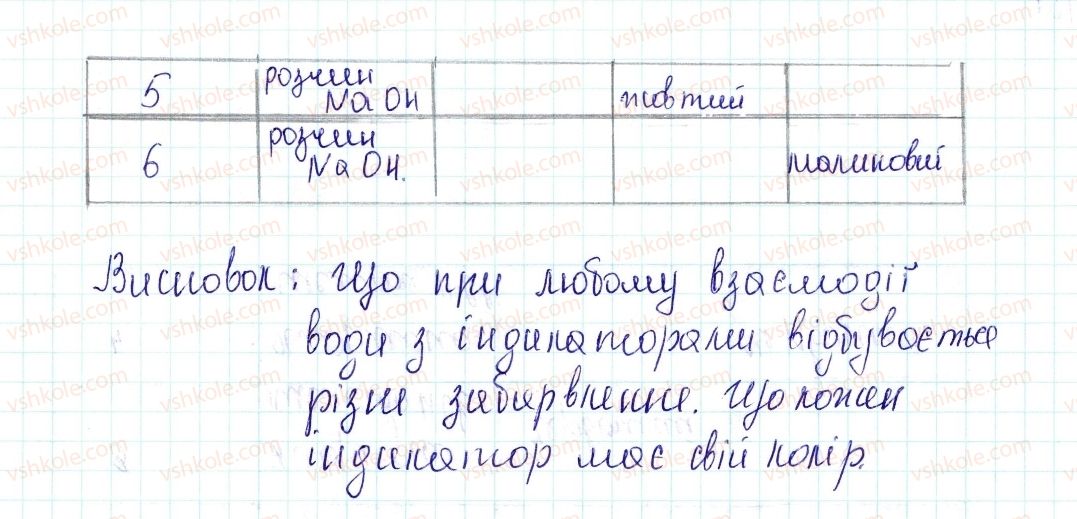 5 розчин NaOH жовтий
6 розчин NaOH. малиновий
Висновок: Що при любому взаємодії
води з індикаторами відбувається
різне забарвлення. Що кожен
індикатор має свій колір.
vshkole.com